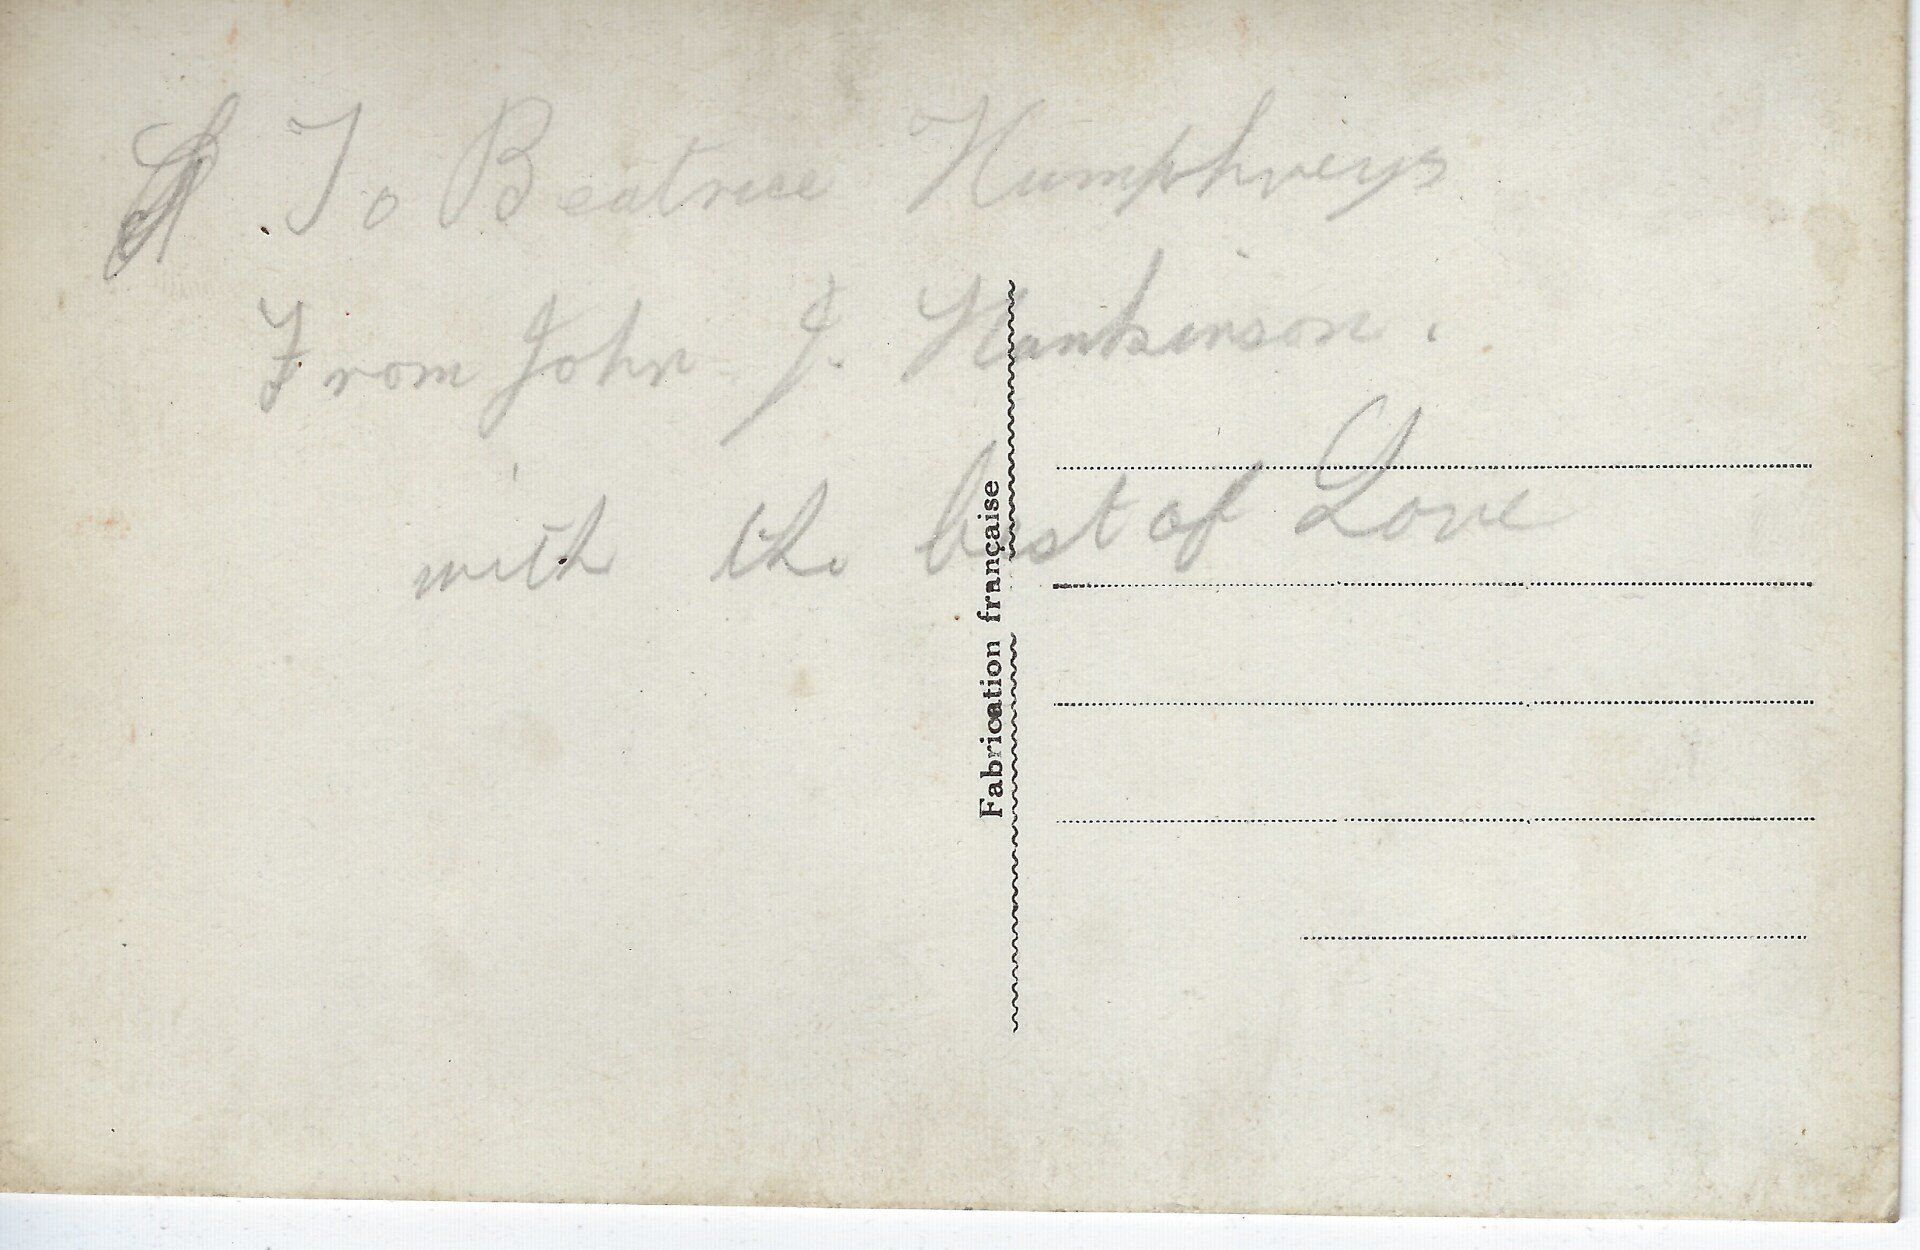 To Beatrice Humphreys
From John J. Hankinson.
with the best of Love
Fabrication française